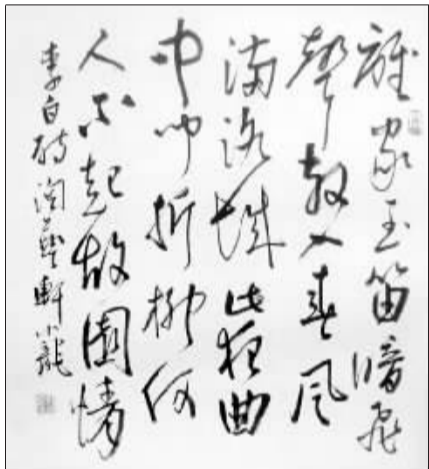 誰家玉笛暗飛
聲散入春風
滿洛城此夜曲
中聞折柳何
人不起故園情
李白詩 軒小龍